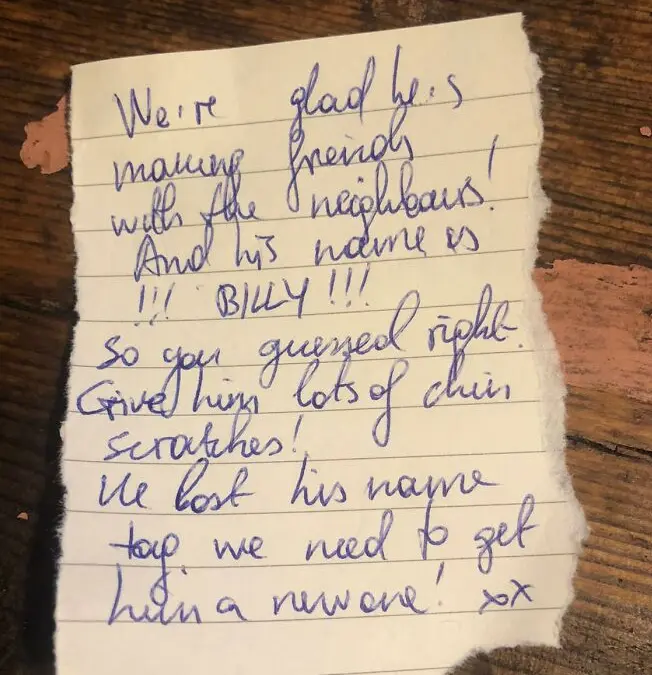 We're glad he's
making friends
with the neighbours!
And his name is
!!! BILLY !!!
So you guessed right.
Give him lots of chin
scratches!
He lost his name
tag we need to get
him a new one! xx